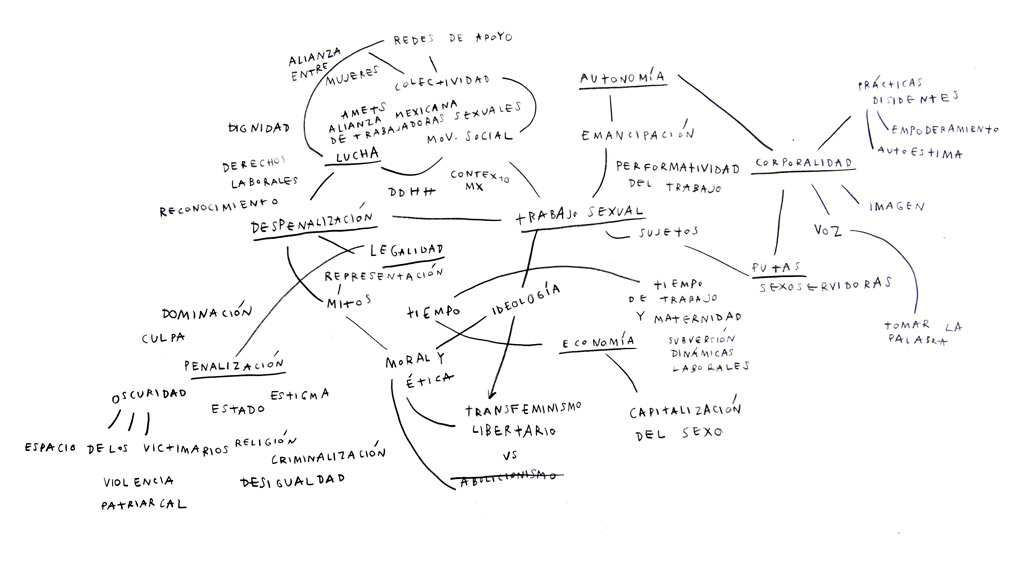 REDES DE APOYO
ALIANZA
ENTRE
MUJERES
COLECTIVIDAD
AMETS
ALIANZA MEXICANA
DE TRABAJADORAS SEXUALES
MOV. SOCIAL
DIGNIDAD
LUCHA
DERECHOS
LABORALES
RECONOCIMIENTO
DDHH
CONTEXTO
MX
DESPENALIZACIÓN
AUTONOMÍA
EMANCIPACIÓN
PERFORMATIVIDAD
DEL TRABAJO
PRÁCTICAS
DISIDENTES
EMPODERAMIENTO
AUTOESTIMA
CORPORALIDAD
IMAGEN
VOZ
TRABAJO SEXUAL
SUJETOS
PUTAS
SEXOSERVIDORAS
TOMAR LA
PALABRA
LEGALIDAD
REPRESENTACIÓN
MITOS
TIEMPO
IDEOLOGÍA
TIEMPO
DE TRABAJO
Y MATERNIDAD
SUBVERSIÓN
DINÁMICAS
LABORALES
ECONOMÍA
CAPITALIZACIÓN
DEL SEXO
DOMINACIÓN
CULPA
PENALIZACIÓN
MORAL Y
ÉTICA
OSCURIDAD
ESTIGMA
ESTADO
TRANSFEMINISMO
LIBERTARIO
VS
ABOLICIONISMO
ESPACIO DE LOS VICTIMARIOS
RELIGIÓN
CRIMINALIZACIÓN
DESIGUALDAD
VIOLENCIA
PATRIARCAL